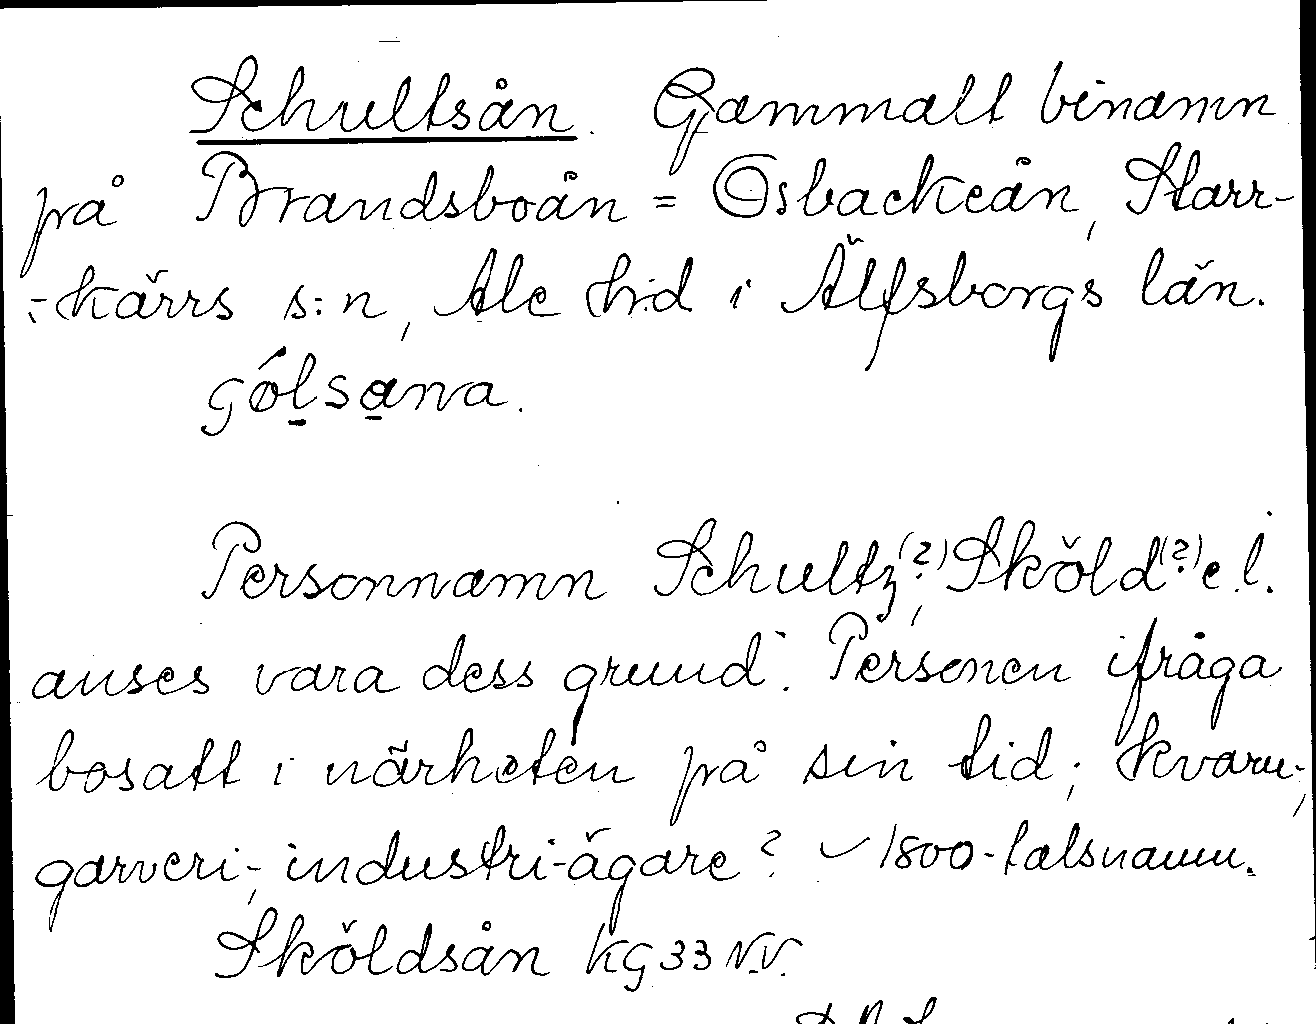 Schultsån. Gammalt binamn
på Brandsboån = Osbackeån, Starr-
-kärrs s:n, Ale h:d i Älfsborgs län.
gólsana.
Personnamn Schultz(?), Sköld(?) e.l.
anses vara dess grund. Personen ifråga
bosatt i närheten på sin tid; kvarn-,
garveri-, industri-ägare? ~ 1800-talsnamn.
Sköldsån KG 33 N.V.